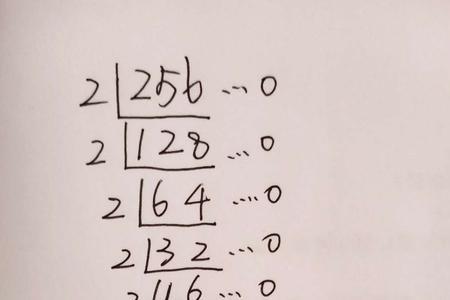 2 256 ... 0
2 128 ... 0
2 64 .... 0
2 32 ... 0
2 16 ... 0